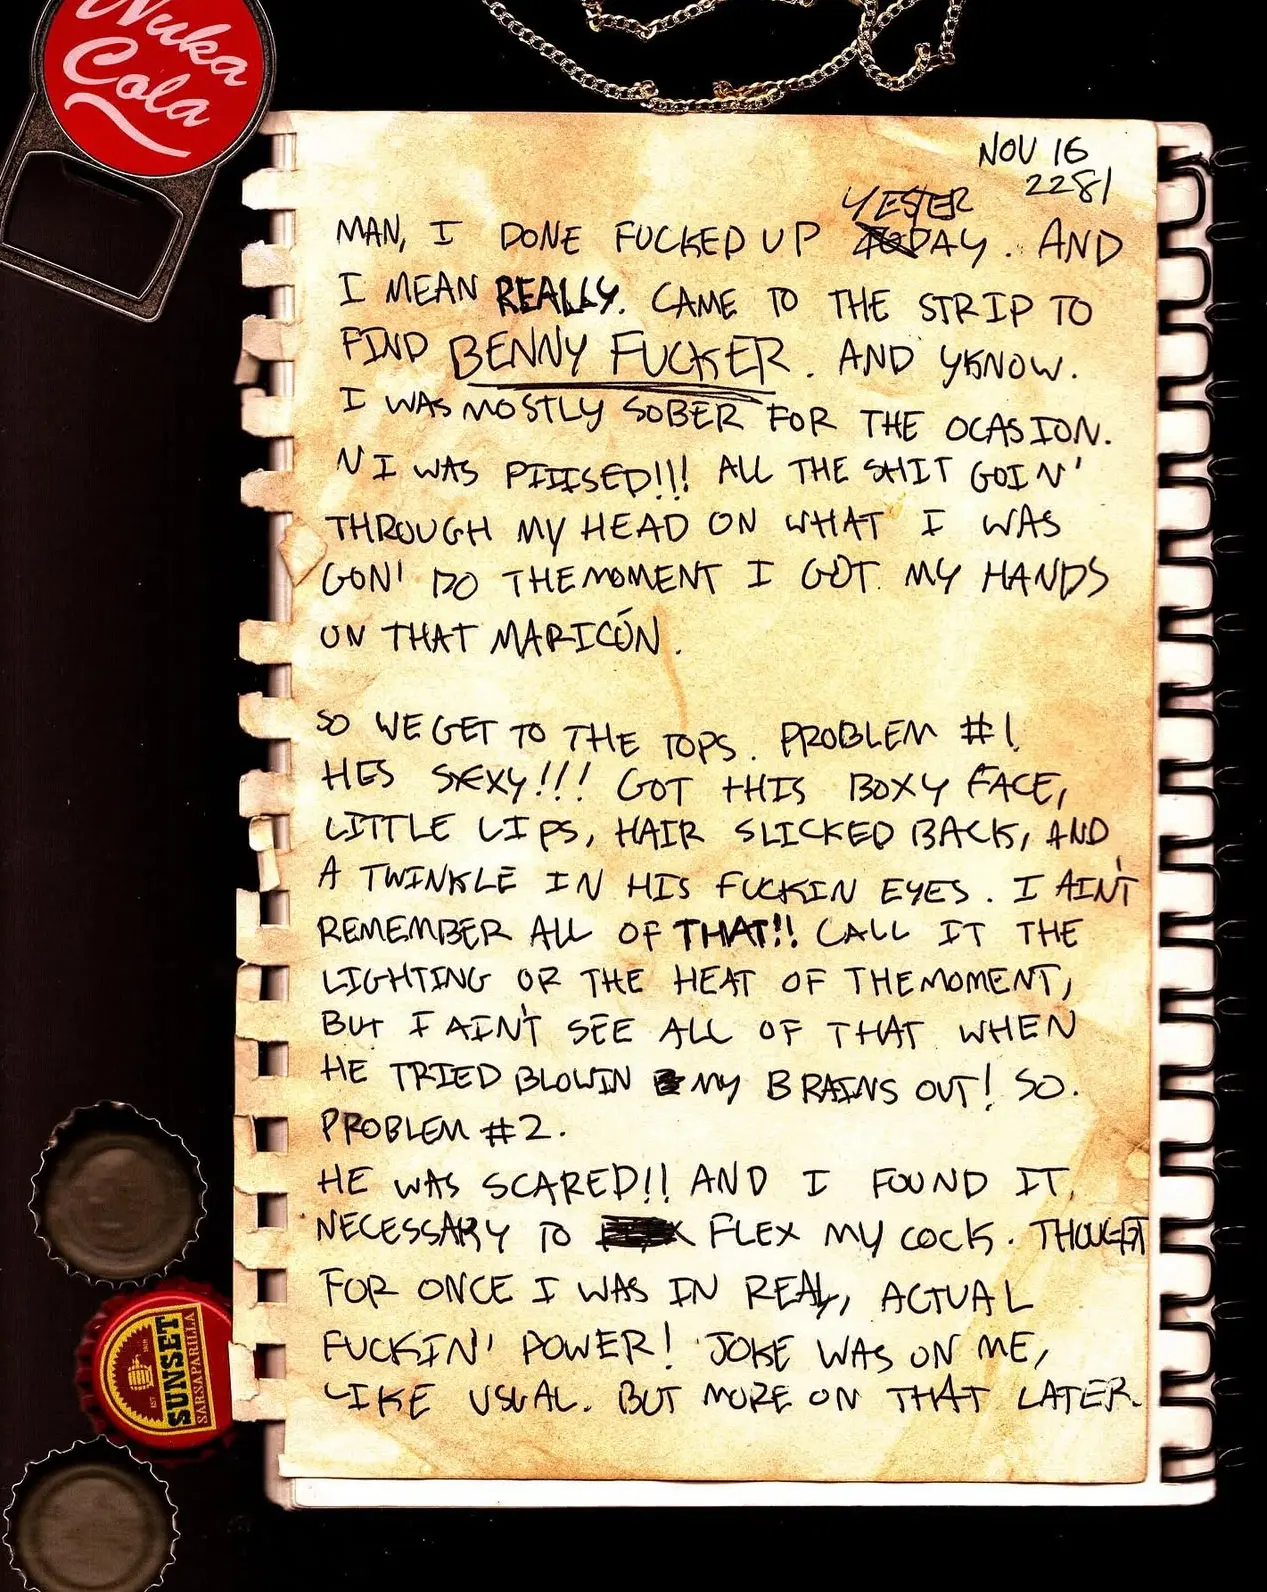 Nuka
Cola
NOV 16
2281
YESTER
MAN, I DONE FUCKED UP TODAY. AND
I MEAN REALLY. CAME TO THE STRIP TO
FIND BENNY FUCKER. AND YKNOW.
I WAS MOSTLY SOBER FOR THE OCASION.
N I WAS PIIISED!!! ALL THE SHIT GOIN'
THROUGH MY HEAD ON WHAT I WAS
GON' DO THE MOMENT I GOT MY HANDS
ON THAT MARICÓN.
SO WE GET TO THE TOPS. PROBLEM #1.
HES SEXY!!! GOT THIS BOXY FACE,
LITTLE LIPS, HAIR SLICKED BACK, AND
A TWINKLE IN HIS FUCKIN EYES. I AIN'T
REMEMBER ALL OF THAT!! CALL IT THE
LIGHTING OR THE HEAT OF THE MOMENT,
BUT I AIN'T SEE ALL OF THAT WHEN
HE TRIED BLOWIN MY BRAINS OUT! SO.
PROBLEM #2.
HE WAS SCARED!! AND I FOUND IT
NECESSARY TO FLEX MY COCK. THOUGHT
FOR ONCE I WAS IN REAL, ACTUAL
FUCKIN' POWER! JOKE WAS ON ME,
LIKE USUAL. BUT MORE ON THAT LATER.
SUNSET
SARSAPARILLA